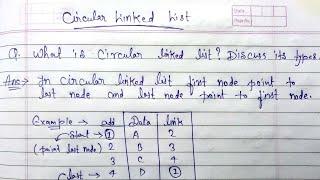 Circular Linked List
Q. What is Circular linked list? Discuss its types.
Ans→ In Circular linked list first node point to
last node and last node point to first node.
Example → add Data link
start → 1 A 2
(point last node) 2 B 3
3 C 4
last → 4 D 1